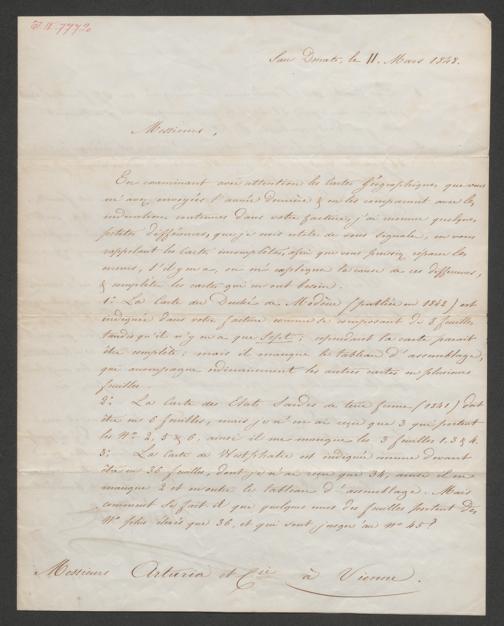 San Donato, le 11. Mars 1848.
Messieurs,
En examinant avec attention les Cartes Géographiques que vous
m'avez envoyées l'année dernière & en les comparant avec les
indications contenues dans votre facture, j'ai quelques
petites différences, que je suis de vous signaler, en vous
rappelant les Cartes incomplètes, afin que vous puissiez réparer les
s'il y en a, ou m'expliquer la cause de ces différences,
& compléter les cartes qui en ont besoin.
1.° La Carte du Duché de Modène (publiée en 1842) est
indiquée dans votre facture comme se composant de 8 feuilles
tandis qu'il n'y en a que Sept; cependant la carte parait
être complète; mais il manque le tableau d'assemblage,
qui accompagne ordinairement les autres cartes en plusieurs
feuilles.
2.° La Carte des Etats Sardes de terre ferme (1841) doit
être en 6 feuilles, mais je n'en ai reçu que 3 qui portent
les N.os 2, 5 & 6, ainsi il me manque les 3 feuilles 1. 3 & 4.
3.° La Carte de Westphalie est indiquée comme devant
être en 36 feuilles, dont je n'ai reçu que 34, ainsi il en
manque 2 et en outre le tableau d'assemblage. Mais
comment se fait il que quelques unes des feuilles portent des
N.os plus élevés que 36, et qui vont jusqu'au N.o 45?
Messieurs Artaria et C.ie à Vienne.